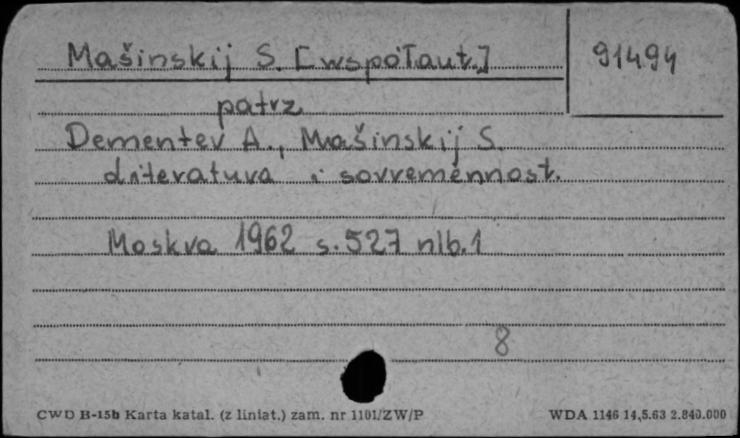 Mašinskij S. [współaut.]
91494
patrz
Dementev A., Mašinskij S.
Literatura i sovremennost.
Moskva 1962 s. 527 nlb. 1
8
CWD B-15b Karta katal. (z liniat.) zam. nr 1101/ZW/P
WDA 1146 14,5.63 2.840.000